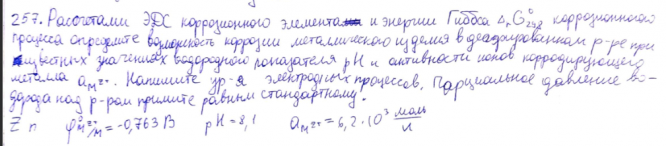 257. Рассчетами ЭДС коррозионного элемента и энергии Гиббса Δ₂G°₂₉₈ коррозионного
процесса определите возможность коррозии металлического изделия в деаэрированном р-ре при
известных значениях водородного показателя pH и активности ионов корродирующего
металла aₘ²⁺. Напишите ур-я электродных процессов. Парциальное давление во-
дорода над р-ром примите равным стандартному.
Zn φ°ₘ²⁺/ₘ = -0,763 В pH = 8,1 aₘ²⁺ = 6,2·10³ моль/л